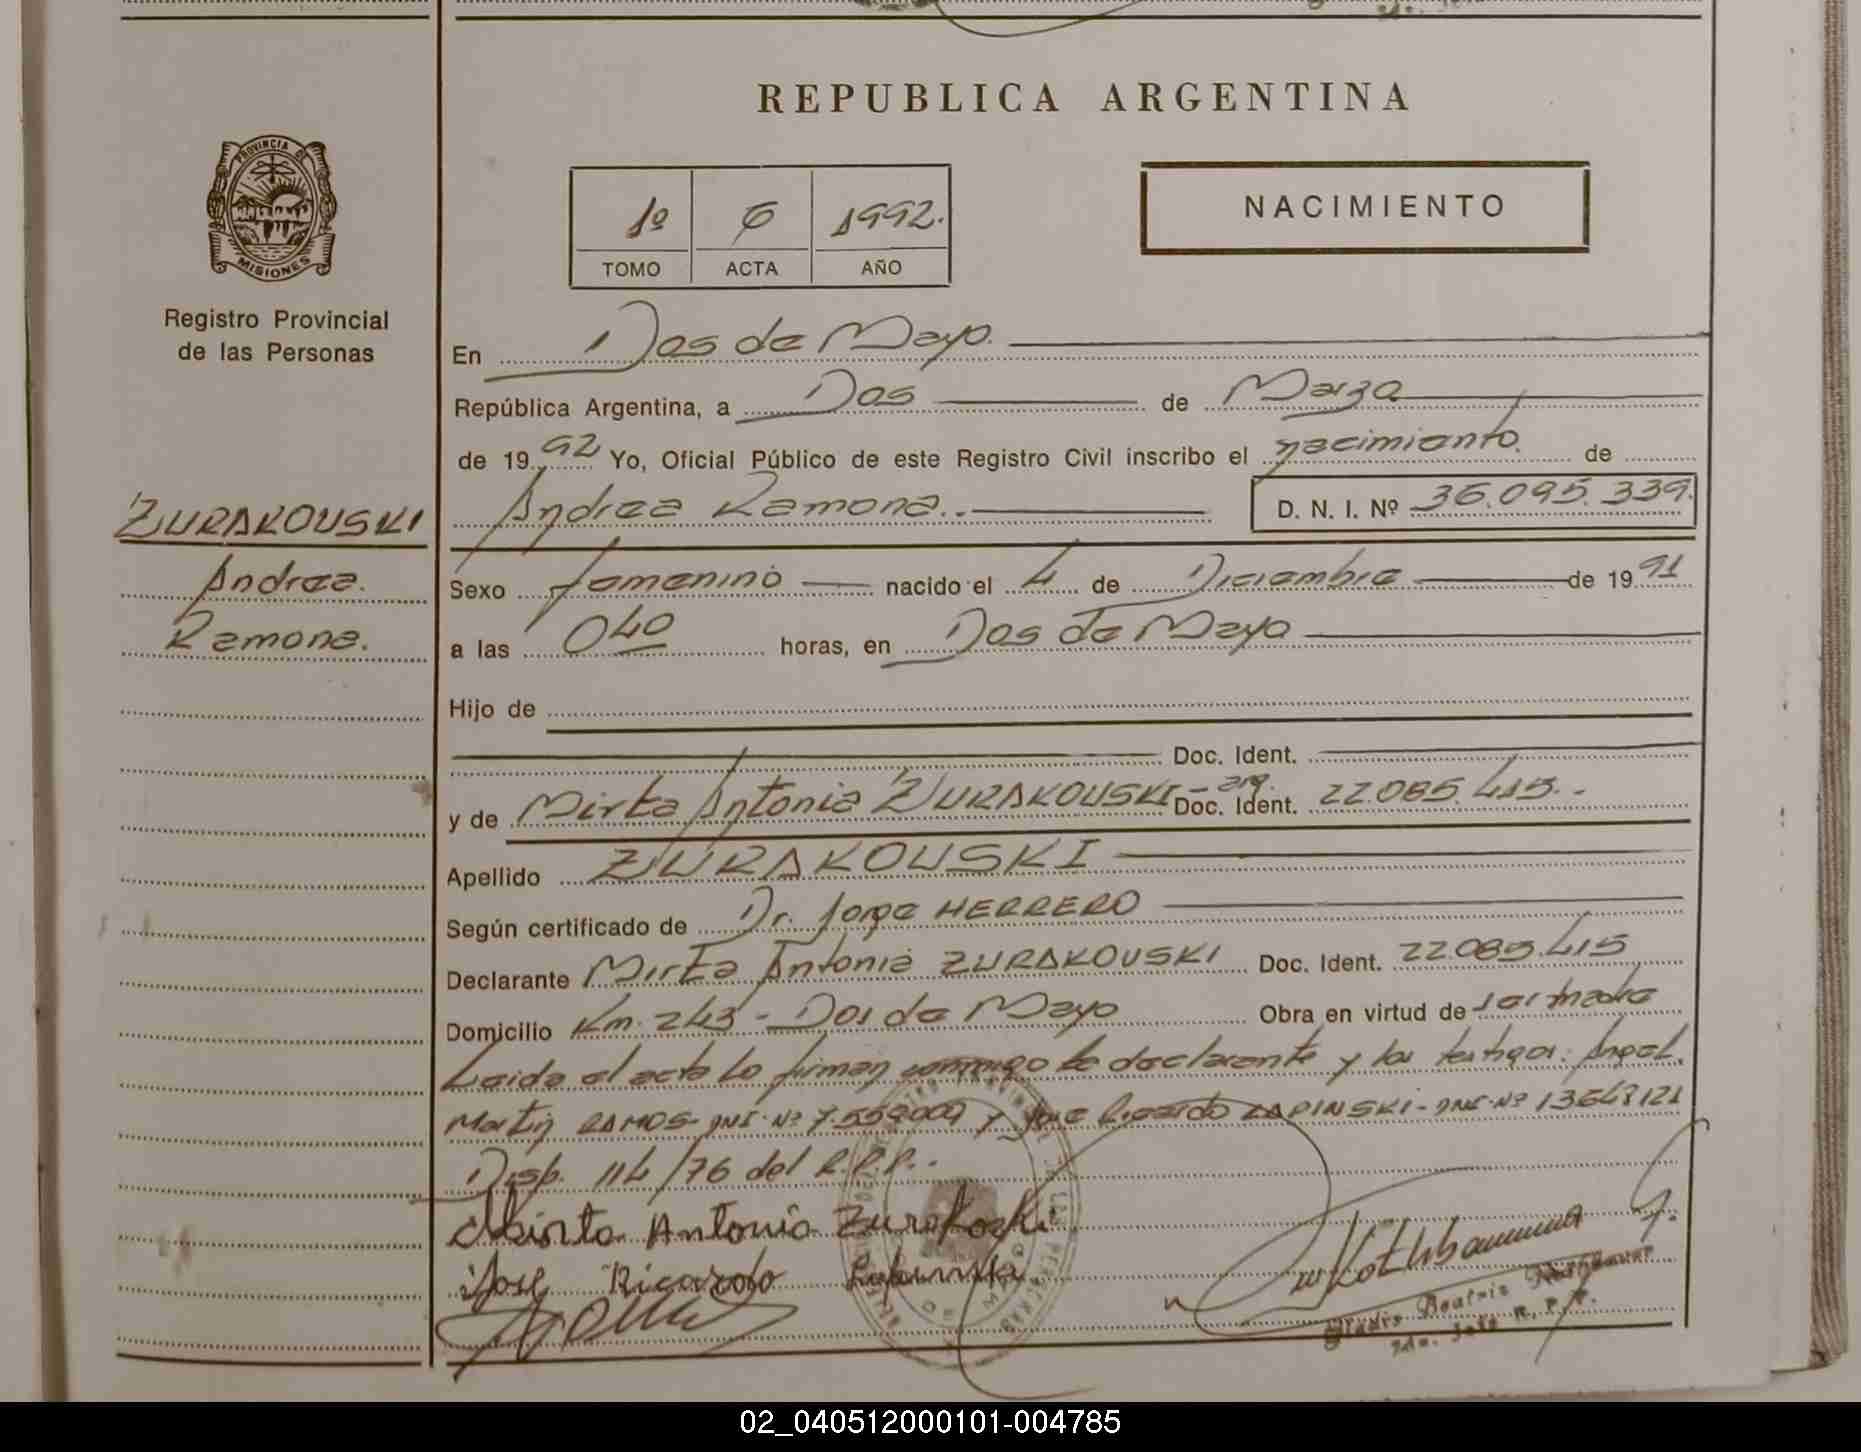 REPUBLICA ARGENTINA
PROVINCIA DE
MISIONES
Registro Provincial
de las Personas
1º 6 1992.
TOMO ACTA AÑO
NACIMIENTO
En Dos de Mayo.
República Argentina, a Dos de Marzo
de 1992 Yo, Oficial Público de este Registro Civil inscribo el nacimiento. de
Andrea Ramona.. D. N. I. Nº 36.095.339.
ZURAKOUSKI
Andrea.
Ramona.
Sexo femenino nacido el 4 de Diciembre de 1991
a las 040 horas, en Dos de Mayo
Hijo de
Doc. Ident.
y de Mirta Antonia ZURAKOUSKI - arg. Doc. Ident. 22.085.415.-
Apellido ZURAKOUSKI
Según certificado de Dr. Jorge HERRERO
Declarante Mirta Antonia ZURAKOUSKI Doc. Ident. 22.085.415
Domicilio Km. 243 - Dos de Mayo Obra en virtud de ser madre
Leida el acta lo firman conmigo la declarante y los testigos: Angel
Martin RAMOS - DNI. Nº 7.559009 y Jose Ricardo LAPINSKI - DNI. Nº 13643121
Disp. 114/76 del R.P.P..
Mirta Antonia Zurakoski
José Ricardo Lapinski
Gladis Beatriz
R. P. P.
02_040512000101-004785